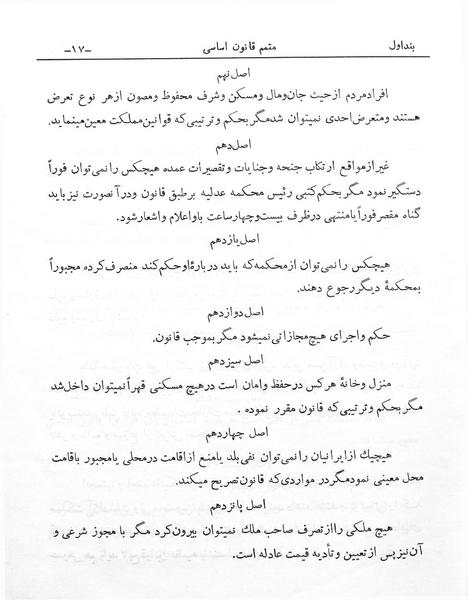 بند اول متمم قانون اساسی -۱۷-
اصل نهم
افراد مردم از حیث جان و مال و مسکن و شرف محفوظ و مصون از هر نوع تعرض
هستند و متعرض احدی نمیتوان شد مگر بحکم و ترتیبی که قوانین مملکت معین مینماید.
اصل دهم
غیر از مواقع ارتکاب جنحه و جنایات و تقصیرات عمده هیچکس را نمی توان فوراً
دستگیر نمود مگر بحکم کتبی رئیس محکمه عدلیه بر طبق قانون و در آنصورت نیز باید
گناه مقصر فوراً یا منتهی در ظرف بیست و چهار ساعت باو اعلام و اشعار شود.
اصل یازدهم
هیچکس را نمی توان از محکمه که باید درباره او حکم کند منصرف کرده مجبوراً
بمحکمهٔ دیگر رجوع دهند.
اصل دوازدهم
حکم و اجرای هیچ مجازاتی نمیشود مگر بموجب قانون.
اصل سیزدهم
منزل و خانهٔ هر کس در حفظ و امان است در هیچ مسکنی قهراً نمیتوان داخل شد
مگر بحکم و ترتیبی که قانون مقرر نموده .
اصل چهاردهم
هیچیك از ایرانیان را نمی توان نفی بلد یا منع از اقامت در محلی یا مجبور باقامت
محل معینی نمود مگر در مواردی که قانون تصریح میکند.
اصل پانزدهم
هیچ ملکی را از تصرف صاحب ملك نمیتوان بیرون کرد مگر با مجوز شرعی و
آن نیز پس از تعیین و تأدیه قیمت عادله است.